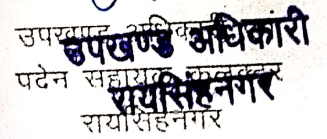 उपखण्ड अधिकारी
उपखण्ड अधिकारी
पदेन सहायक कलक्टर
रायसिंहनगर
रायसिंहनगर